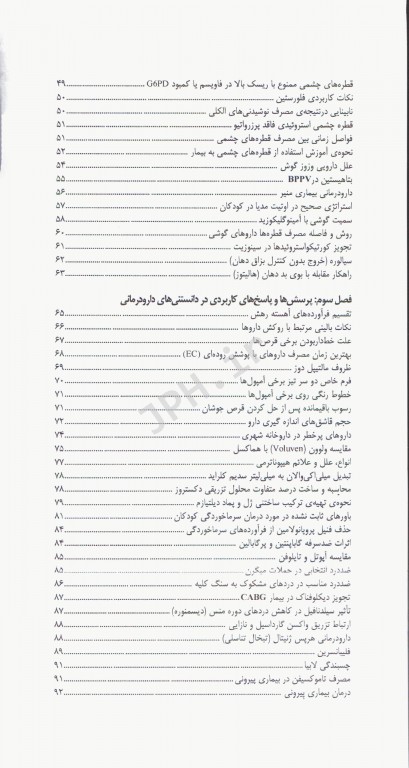 قطره‌های چشمی ممنوع با ریسک بالا در فاویسم یا کمبود G6PD ........ ۴۹
نکات کاربردی فلورستین ........ ۵۰
نابینایی درنتیجه‌ی مصرف نوشیدنی‌های الکلی ........ ۵۰
قطره چشمی استروئیدی فاقد پرزرواتیو ........ ۵۱
فواصل زمانی بین مصرف قطره‌های چشمی ........ ۵۱
نحوه‌ی آموزش استفاده از قطره‌های چشمی به بیمار ........ ۵۲
علل دارویی وزوز گوش ........ ۵۴
بتاهیستین در BPPV ........ ۵۵
دارودرمانی بیماری منیر ........ ۵۶
استراتژی صحیح در اوتیت مدیا در کودکان ........ ۵۷
سمیت گوشی با آمینوگلیکوزید ........ ۵۸
روش و فاصله مصرف قطره‌ها داروهای گوشی ........ ۶۰
تجویز کورتیکواستروئیدها در سینوزیت ........ ۶۱
سیالوره (خروج بدون کنترل بزاق دهان) ........ ۶۲
راهکار مقابله با بوی بد دهان (هالیتوز) ........ ۶۳
فصل سوم: پرسش‌ها و پاسخ‌های کاربردی در دانستنی‌های دارودرمانی
تقسیم فرآورده‌های آهسته رهش ........ ۶۵
نکات بالینی مرتبط با روکش داروها ........ ۶۶
علت خط‌داربودن برخی قرص‌ها ........ ۶۷
بهترین زمان مصرف داروهای با پوشش روده‌ای (EC) ........ ۶۸
ظروف مالتیپل دوز ........ ۶۹
فرم خاص دو سر تیز برخی آمپول‌ها ........ ۷۰
خطوط رنگی روی برخی آمپول‌ها ........ ۷۱
رسوب باقیمانده پس از حل کردن قرص جوشان ........ ۷۱
حجم قاشق‌های اندازه گیری دارو ........ ۷۲
داروهای پرخطر در داروخانه شهری ........ ۷۴
مقایسه ولوون (Voluven) با هماکسل ........ ۷۵
انواع، علل و علائم هیپوناترمی ........ ۷۷
تبدیل میلی‌اکی‌والان به میلی‌لیتر سدیم کلراید ........ ۷۸
محاسبه و ساخت درصد متفاوت محلول تزریقی دکستروز ........ ۷۸
نحوه‌ی تهیه‌ی ترکیب ساختنی ژل و پماد دیلتیازم ........ ۷۹
باورهای ثابت نشده در مورد درمان سرماخوردگی کودکان ........ ۸۱
حذف فنیل پروپانولامین از فرآورده‌های سرماخوردگی ........ ۸۴
اثرات ضدسرفه گاباپنتین و پرگابالین ........ ۸۴
مقایسه آپوتل و تایلوفن ........ ۸۵
ضددرد انتخابی در حملات میگرن ........ ۸۵
ضددرد مناسب در دردهای مشکوک به سنگ کلیه ........ ۸۶
تجویز دیکلوفناک در بیمار CABG ........ ۸۷
تأثیر سیلدنافیل در کاهش دردهای دوره منس (دیسمنوره) ........ ۸۷
ارتباط تزریق واکسن گارداسیل و نازایی ........ ۸۸
دارودرمانی هرپس ژنیتال (تبخال تناسلی) ........ ۸۸
فلیبانسرین ........ ۸۹
چسبندگی لابیا ........ ۹۱
مصرف تاموکسیفن در بیماری پیرونی ........ ۹۱
درمان بیماری پیرونی ........ ۹۲
JPH.ir